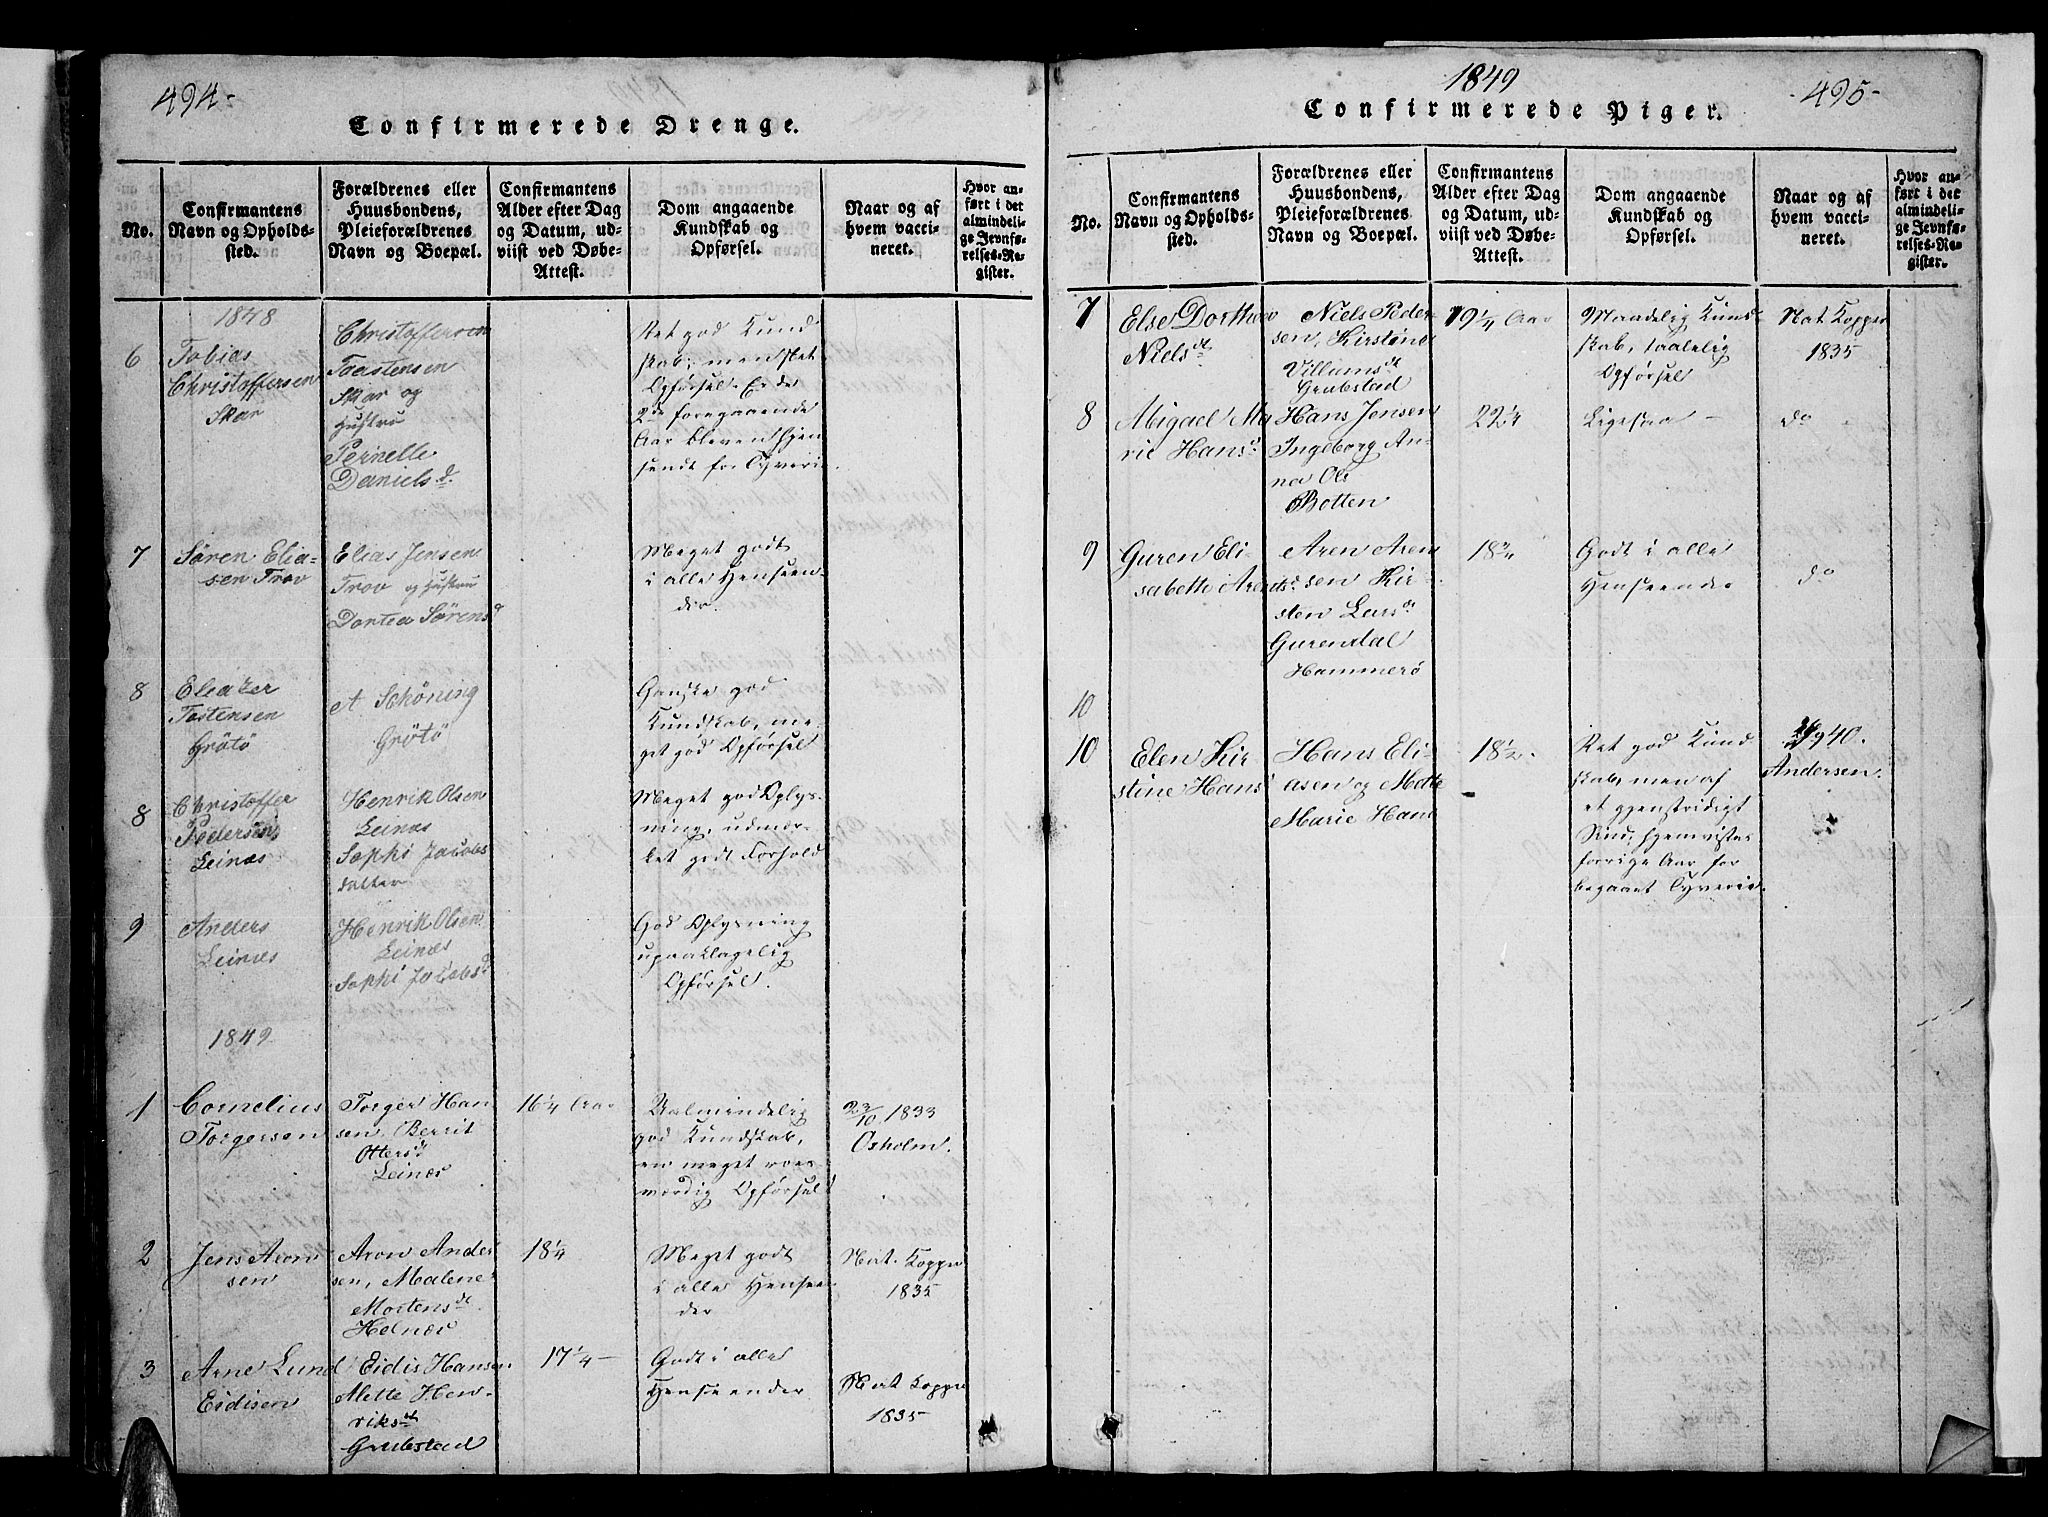 494-
Confirmerede Drenge.
No.
Confirmantens
Navn og Opholds-
sted.
Forældrenes eller
Huusbondens,
Pleieforældrenes
Navn og Boepæl.
Confirmantens
Alder efter Dag
og Datum, ud-
viist ved Døbe-
Attest.
Dom angaaende
Kundskab og
Opførsel.
Naar og af
hvem vacci-
neret.
Hvor an-
ført i det
almindeli-
ge Jevnfø-
relses-Re-
gister.
1848
6
Tobias
Christoffersen
Skar
Christoffersen
Taastensen
Skar og
Hustru
Pernelle
Daniels d.
Ret god Kund
skab; men slet
Opførsel. Er de
2de foregaaende
Aar bleven hjem
sendt for Tyveri
7
Søren Elia-
sen Trov
Elias Jensen
Trov og Hustru
Dortea Sørens d
Meget godt
i alle Henseen-
der.
8
Eliazer
Tostensen
Grötö
A Schöning
Grötö
Ganske god
Kundskab, me-
get god Opførsel
8
Christoffer
Pedersen
Leines
Henrik Olsen
Leines
Sophi Jacobs
datter
Meget god Oplys-
ning, udmær-
ket godt Forhold
9
Anders
Leines
Henrik Olsen
Leines
Sophi Jacobs d
God Oplysning
upaaklagelig
Opførsel.
1849
1
Cornelius
Torgersen
Torger Han
sen, Berrit
Otters d
Leines
16 1/4 Aar
Ualmindelig
god Kundskab,
en meget roes
værdig Opførsel
23/10 1833
Oxholm.
2
Jens Aron
sen
Aron Ander
sen, Malene
Mortens dt
Helnes
18 1/4
Meget godt
i alle Henseen
der
Nat. Kopper
1835
3
Arne Lund
Eidisen
Eidis Hansen
Alette Hen-
riks dt
Grubstad
17 1/4 -
Godt i alle
Henseender
Nat Kopper
1835
1849
-495-
Confirmerede Piger.
No.
Confirmantens
Navn og Opholds-
sted.
Forældrenes eller
Huusbondens,
Pleieforældrenes
Navn og Boepæl.
Confirmantens
Alder efter Dag
og Datum, ud-
viist ved Døbe-
Attest.
Dom angaaende
Kundskab og
Opførsel.
Naar og af
hvem vacci-
neret.
Hvor an-
ført i det
almindeli-
ge Jevnfø-
relses-Re-
gister.
7
Else Dorthea
Niels dt
Niels Peder-
sen, Kirstine
Villums dt
Grubstad
19 1/4 Aar
Maadelig Kund
skab, taalelig
Opførsel
Nat Kopper
1835
8
Abigael Ma
rie Hans d
Hans Jensen
Ingeborg An-
na Ols
Botten
22 1/4
Ligesaa -
do
9
Guren Eli-
sabeth Arents d
Aren Aren
sen Kir-
sten Lars dt
Gurendal
Hammerö
18 3/4
Godt i alle
Henseender
do
10
10
Elen Kir-
stine Hans d
Hans Eli-
asen og Mette
Marie Hans
18 1/2.
Ret god Kund
skab, men af
et gjenstridigt
Sind; hjemvistes
forrige Aar for
begaaet Tyveri.
40.
Andersen.